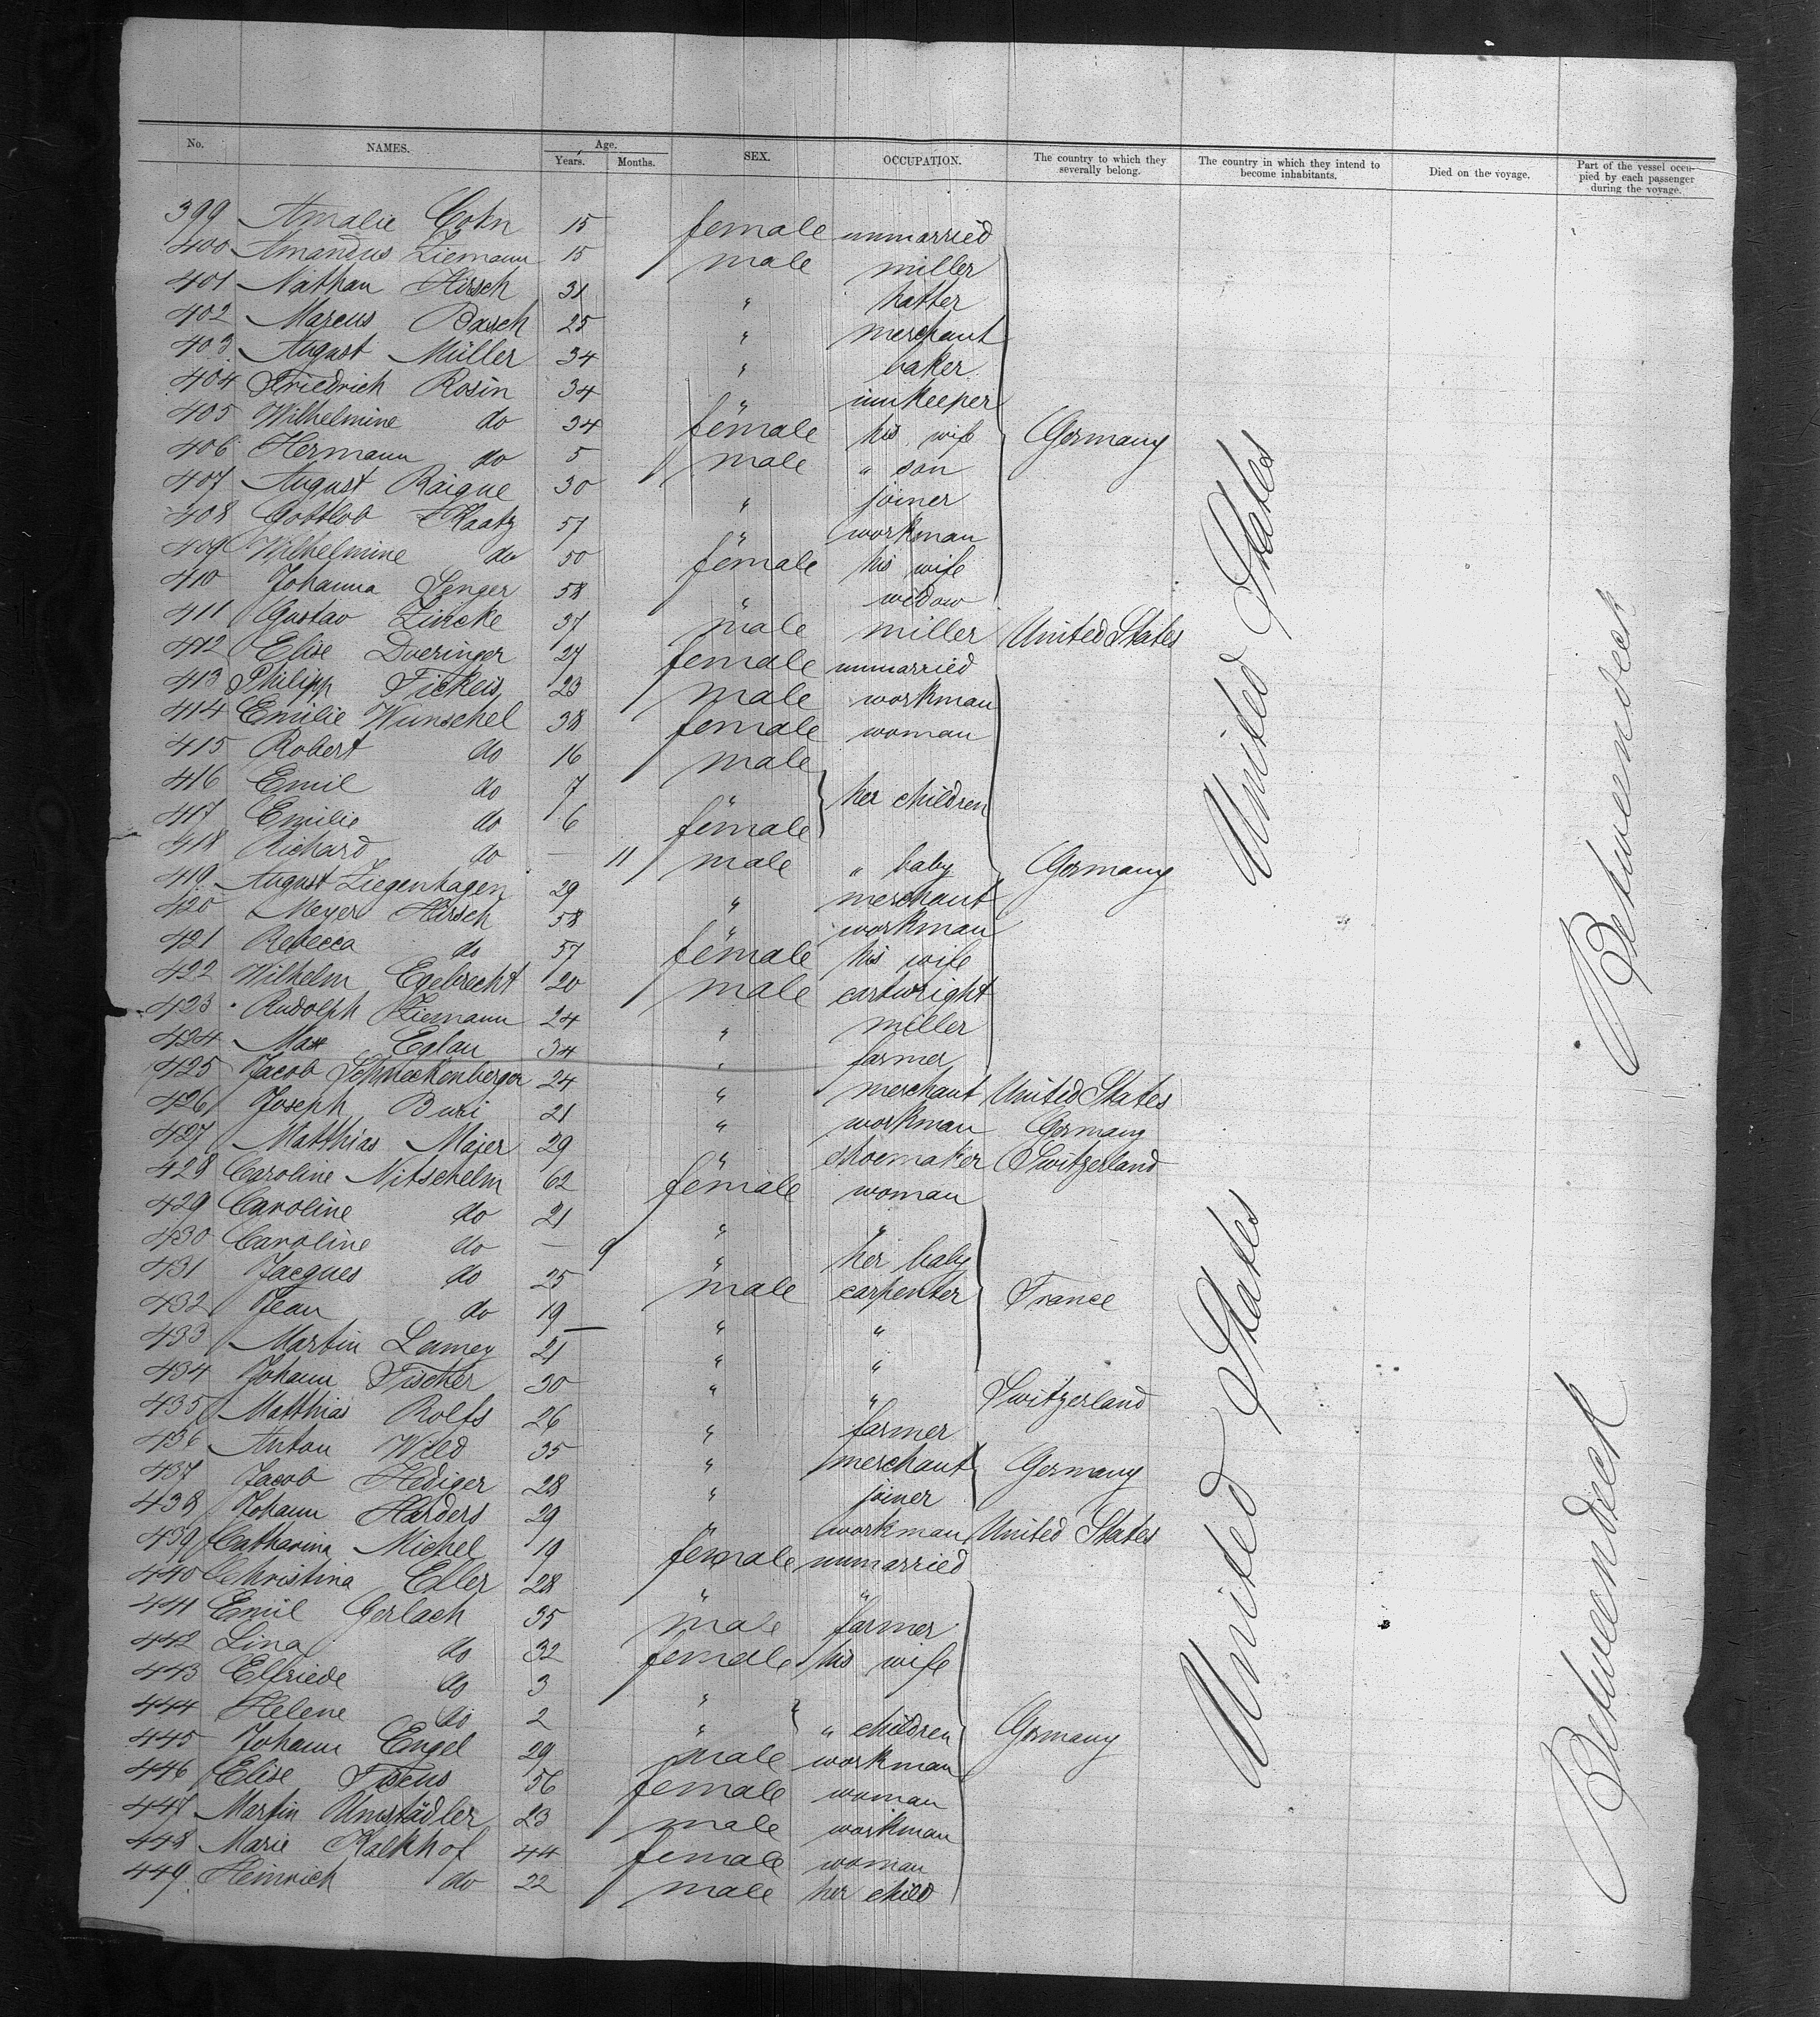 No. NAMES. Age. Years. Months. SEX. OCCUPATION. The country to which they severally belong. The country in which they intend to become inhabitants. Died on the voyage. Part of the vessel occupied by each passenger during the voyage.
399 Amalie Cohn 15 female unmarried
400 Amandus Ziemann 15 male miller
401 Nathan Hirsch 31 " hatter
402 Marcus Basch 25 " merchant
403 August Müller 34 " baker
404 Friedrich Rosin 34 " innkeeper
405 Wilhelmine do 34 female his wife Germany
406 Hermann do 5 male " son
407 August Raigue 30 " joiner
408 Gottlob Kaatz 57 " workman
409 Wilhelmine do 50 female his wife
410 Johanna Senger 58 " widow
411 Gustav Zincke 37 male miller United States
412 Elise Doeringer 27 female unmarried
413 Philipp Fickeis 23 male workman
414 Emilie Wunschel 38 female woman
415 Robert do 16 male
416 Emil do 7 " her children
417 Emilie do 6 female
418 Richard do — 11 male " baby Germany
419 August Ziegenhagen 29 " merchant
420 Meyer Hirsch 58 " workman
421 Rebecca do 57 female his wife
422 Wilhelm Egebrecht 20 male cartwright
423 Rudolph Ziemann 24 " miller
424 Max Eglau 34 " farmer
425 Jacob Schneckenberger 24 " merchant United States
426 Joseph Buri 21 " workman Germany
427 Matthias Majer 29 " shoemaker Switzerland
428 Caroline Mitschelm 62 female woman
429 Caroline do 21 " "
430 Caroline do — 9 " her baby
431 Jacques do 25 male carpenter France
432 Jean do 19 — " "
433 Martin Lamey 21 " "
434 Johann Fischer 30 " " Switzerland
435 Matthias Rolfs 26 " farmer
436 Anton Wild 35 " merchant Germany
437 Jacob Hediger 28 " joiner
438 Johann Harders 29 " workman United States
439 Catharina Michel 19 female unmarried
440 Christina Eller 28 " "
441 Emil Gerlach 35 male farmer
442 Lina do 32 female his wife
443 Elfriede do 3 "
444 Helene do 2 " " children Germany
445 Johann Engel 29 male workman
446 Elise Fiscus 56 female woman
447 Martin Umstädler 23 male workman
448 Marie Kalkhof 44 female woman
449 Heinrich do 22 male her child
United States
United States
Betweendeck
Betweendeck